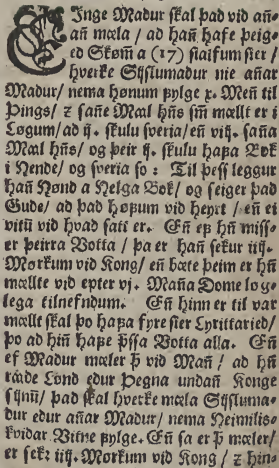 ENginge Madur skal þad vid añ-
añ mæla / ad hañ hafe þeig-
ed Skøm̃ a (17) siaifum sier /
hverke Syslumadur nie añar
Madur / nema hønum þylge x. Meñ til
Þings / ꝛ sañe Mæl hn̄s sm̄ mællt er i
Løgum / ad ij. skulu sveria / eñ viij. sañа
Mæl hn̄s / og þeir ij. skulu haꝼa Bok
i Hende / og sveria so : Til þess leggur
hañ Hønd a Helga Bok / og seiger þad
Gude / ad þad høꝼum vid heyrt / eñ ei
vitū vid hvad satt er. Eñ eꝼ hn̄ miss-
er þeirra Votta / þa er hañ sekur iiij.
Mørkum vid Kong / eñ bæte þeim er hn̄
mællte vid epter vj. Maña Dome løg-
lega tilnefndum. Eñ hinn er til var
mællt skal þo haꝼa fyre sier Lyrittaried /
þo ad hiñ haꝼe þssa Votta alla. Eñ
ef Madur mæler þ̄ vid Mañ / ad hn̄
ræde Lønd edur Þegna undañ Konge
sijnū / þad skal hverke mæla Sysluma-
dur edur añar Madur / nema Heimilis-
kvidar Vitne þylge. Eñ sa er þ̄ mæler /
er sekꝛ iiij. Mørkum vid Kong / ꝛ hin-